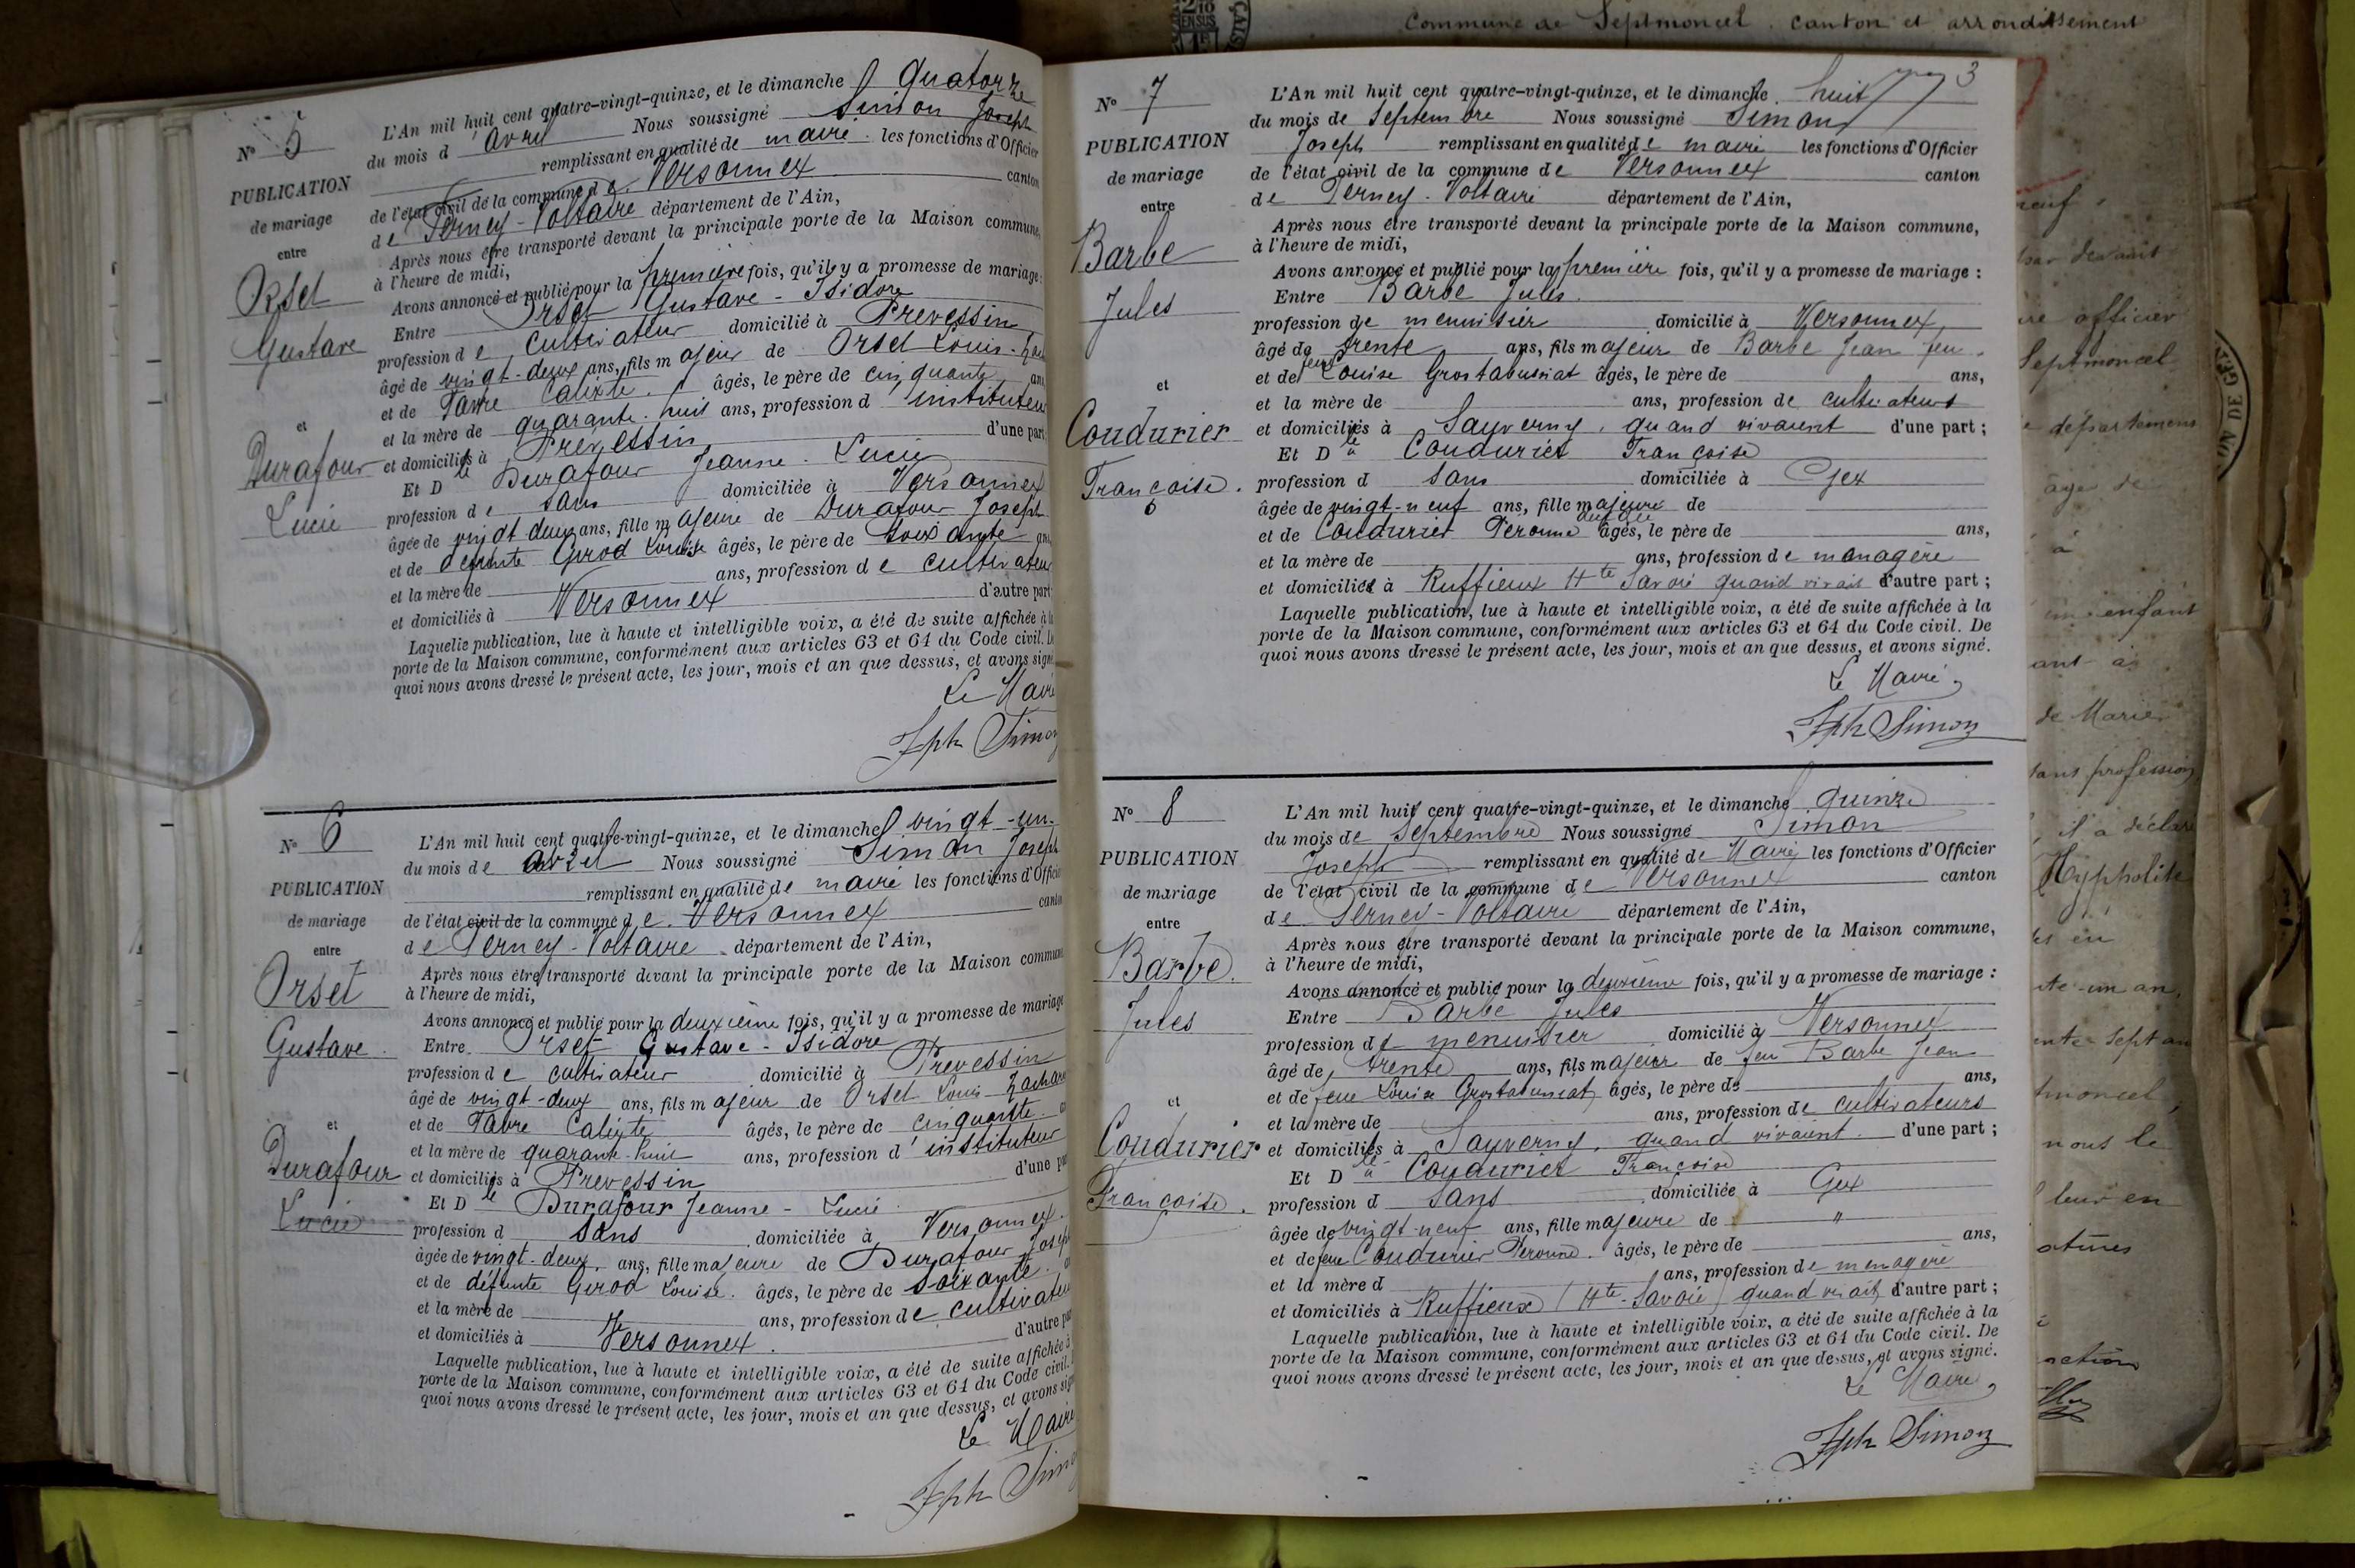 N° 5
PUBLICATION
de mariage
entre
Orset
Gustave
et
Durafour
Lucie
L'An mil huit cent quatre-vingt-quinze, et le dimanche quatorze
du mois d'avril Nous soussigné Simon Joseph
remplissant en qualité de maire les fonctions d'Officier
de l'état civil de la commune de Versonnex canton
de Ferney-Voltaire département de l'Ain,
Après nous être transporté devant la principale porte de la Maison commune,
à l'heure de midi,
Avons annoncé et publié pour la première fois, qu'il y a promesse de mariage :
Entre Orset Gustave - Isidore
profession de cultivateur domicilié à Prevessin
âgé de vingt-deux ans, fils majeur de Orset Louis
et de Favre Calixte âgés, le père de cinquante ans
et la mère de quarante-huit ans, profession d'instituteur
et domiciliés à Prevessin d'une part
Et Dlle Durafour Jeanne - Lucie
profession de sans domiciliée à Versonnex
âgée de vingt deux ans, fille majeure de Durafour Joseph
et de défunte Girod Louise âgés, le père de soixante ans
et la mère de ans, profession de cultivateur
et domiciliés à Versonnex d'autre part
Laquelle publication, lue à haute et intelligible voix, a été de suite affichée à la
porte de la Maison commune, conformément aux articles 63 et 64 du Code civil. De
quoi nous avons dressé le présent acte, les jour, mois et an que dessus, et avons signé
Le Maire
Jph Simon
N° 6
PUBLICATION
de mariage
entre
Orset
Gustave
et
Durafour
Lucie
L'An mil huit cent quatre-vingt-quinze, et le dimanche vingt-un
du mois de avril Nous soussigné Simon Joseph
remplissant en qualité de maire les fonctions d'Officier
de l'état civil de la commune de Versonnex canton
de Ferney-Voltaire département de l'Ain,
Après nous être transporté devant la principale porte de la Maison commune
à l'heure de midi,
Avons annoncé et publié pour la deuxième fois, qu'il y a promesse de mariage
Entre Orset Gustave - Isidore
profession de cultivateur domicilié à Prevessin
âgé de vingt-deux ans, fils majeur de Orset Louis
et de Favre Calixte âgés, le père de cinquante
et la mère de quarante-huit ans, profession d'instituteur
et domiciliés à Prevessin d'une part
Et Dlle Durafour Jeanne - Lucie
profession d sans domiciliée à Versonnex
âgée de vingt-deux ans, fille majeure de Durafour Joseph
et de défunte Girod Louise âgés, le père de soixante
et la mère de ans, profession de cultivateur
et domiciliés à Versonnex d'autre part
Laquelle publication, lue à haute et intelligible voix, a été de suite affichée à
porte de la Maison commune, conformément aux articles 63 et 64 du Code civil.
quoi nous avons dressé le présent acte, les jour, mois et an que dessus, et avons signé
Le Maire
Jph Simon
3
N° 7
PUBLICATION
de mariage
entre
Barbe
Jules
et
Coudurier
Françoise.
L'An mil huit cent quatre-vingt-quinze, et le dimanche huit
du mois de Septembre Nous soussigné Simon
Joseph remplissant en qualité de maire les fonctions d'Officier
de l'état civil de la commune de Versonnex canton
de Ferney-Voltaire département de l'Ain,
Après nous être transporté devant la principale porte de la Maison commune,
à l'heure de midi,
Avons annoncé et publié pour la première fois, qu'il y a promesse de mariage :
Entre Barbe Jules.
profession de menuisier domicilié à Versonnex,
âgé de trente ans, fils majeur de Barbe Jean feu
et de feue Louise Grostabussiat âgés, le père de ans,
et la mère de ans, profession de cultivateurs
et domiciliés à Sauverny, quand vivaient d'une part ;
Et Dlle Coudurier Françoise
profession d sans domiciliée à Gex
âgée de vingt-neuf ans, fille majeure de
et de Coudurier Peronne âgés, le père de ans,
et la mère de ans, profession de menagère
et domiciliés à Ruffieux Hte Savoie quand vivait d'autre part ;
Laquelle publication, lue à haute et intelligible voix, a été de suite affichée à la
porte de la Maison commune, conformément aux articles 63 et 64 du Code civil. De
quoi nous avons dressé le présent acte, les jour, mois et an que dessus, et avons signé.
Le Maire,
Jph Simon
N° 8
PUBLICATION
de mariage
entre
Barbe.
Jules
et
Coudurier
Françoise.
L'An mil huit cent quatre-vingt-quinze, et le dimanche quinze
du mois de Septembre Nous soussigné Simon
Joseph remplissant en qualité de Maire les fonctions d'Officier
de l'état civil de la commune de Versonnex canton
de Ferney-Voltaire département de l'Ain,
Après nous être transporté devant la principale porte de la Maison commune,
à l'heure de midi,
Avons annoncé et publié pour la deuxième fois, qu'il y a promesse de mariage :
Entre Barbe Jules
profession de menuisier domicilié à Versonnex
âgé de trente ans, fils majeur de feu Barbe Jean
et de feue Louise Grostabussiat âgés, le père de ans,
et la mère de ans, profession de cultivateurs
et domiciliés à Sauverny, quand vivaient d'une part ;
Et Dlle Coudurier Françoise
profession d sans domiciliée à Gex
âgée de vingt-neuf ans, fille majeure de "
et de feue Coudurier Peronne. âgés, le père de ans,
et la mère d ans, profession de menagère
et domiciliés à Ruffieux (Hte-Savoie) quand vivait d'autre part ;
Laquelle publication, lue à haute et intelligible voix, a été de suite affichée à la
porte de la Maison commune, conformément aux articles 63 et 64 du Code civil. De
quoi nous avons dressé le présent acte, les jour, mois et an que dessus, et avons signé.
Le Maire,
Jph Simon
Commune de Septmoncel. canton et arrondissement
officier
Septmoncel
département
âge de
à
enfant
de Marie
sans profession
il a déclaré
Hypholite
un an,
sept
nous le
leur en